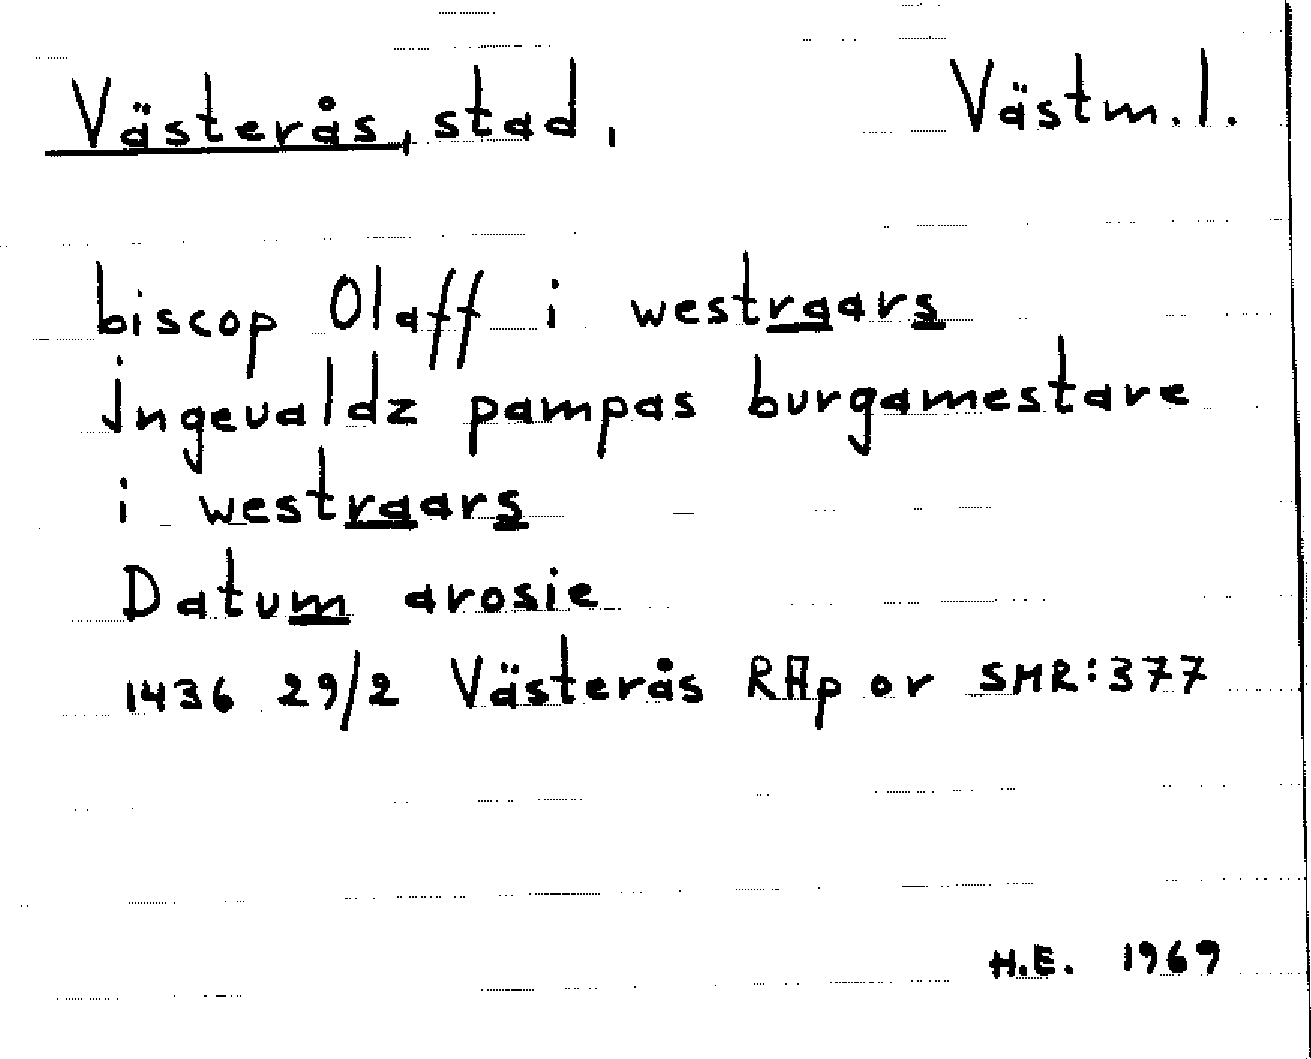 Västerås, stad, Västm. l.
biscop Olaff i westraars
jngeualdz pampas burgamestare
i westraars
Datum arosie
1436 29/2 Västerås RAp or SMR:377
H.E. 1969